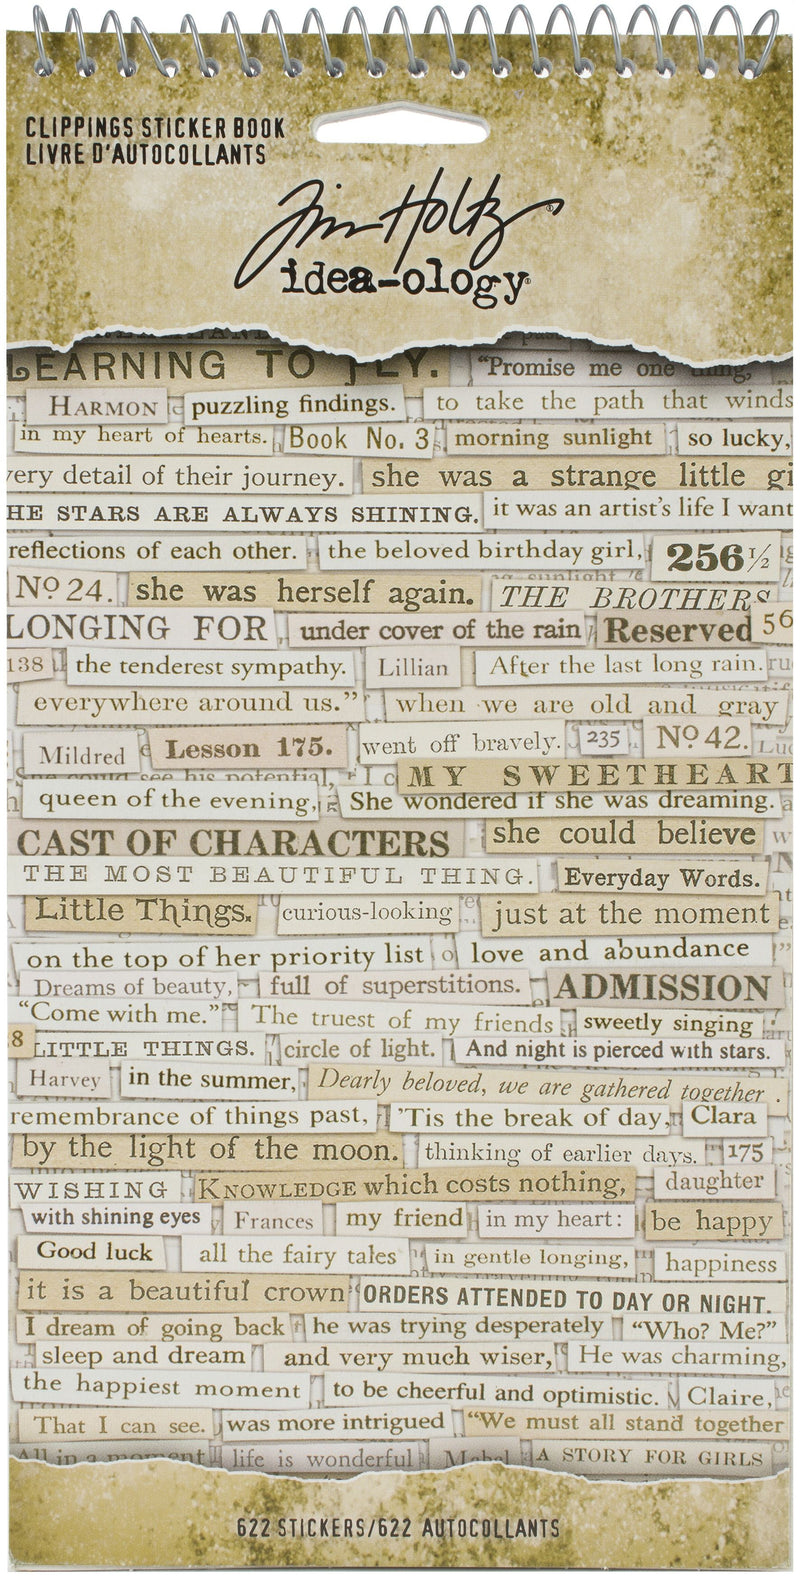 CLIPPINGS STICKER BOOK
LIVRE D'AUTOCOLLANTS
Tim Holtz ®
idea-ology®
LEARNING TO FLY. "Promise me one thing,
HARMON puzzling findings. to take the path that winds
in my heart of hearts. Book No. 3 morning sunlight so lucky,
very detail of their journey. she was a strange little gi
HE STARS ARE ALWAYS SHINING. it was an artist's life I want
reflections of each other. the beloved birthday girl, 256½
No 24. she was herself again. THE BROTHERS
LONGING FOR under cover of the rain Reserved 56
138 the tenderest sympathy. Lillian After the last long rain.
everywhere around us." when we are old and gray
Mildred Lesson 175. went off bravely. 235 No 42.
She could see his potential, MY SWEETHEART
queen of the evening, She wondered if she was dreaming.
CAST OF CHARACTERS she could believe
THE MOST BEAUTIFUL THING. Everyday Words.
Little Things. curious-looking just at the moment
on the top of her priority list love and abundance
Dreams of beauty, full of superstitions. ADMISSION
"Come with me." The truest of my friends sweetly singing
8 LITTLE THINGS. circle of light. And night is pierced with stars.
Harvey in the summer, Dearly beloved, we are gathered together .
remembrance of things past, 'Tis the break of day, Clara
by the light of the moon. thinking of earlier days. 175
WISHING KNOWLEDGE which costs nothing, daughter
with shining eyes Frances my friend in my heart: be happy
Good luck all the fairy tales in gentle longing, happiness
it is a beautiful crown ORDERS ATTENDED TO DAY OR NIGHT.
I dream of going back he was trying desperately "Who? Me?"
sleep and dream and very much wiser, He was charming,
the happiest moment to be cheerful and optimistic. Claire,
That I can see. was more intrigued "We must all stand together
All in a moment life is wonderful Mabel A STORY FOR GIRLS
622 STICKERS/622 AUTOCOLLANTS